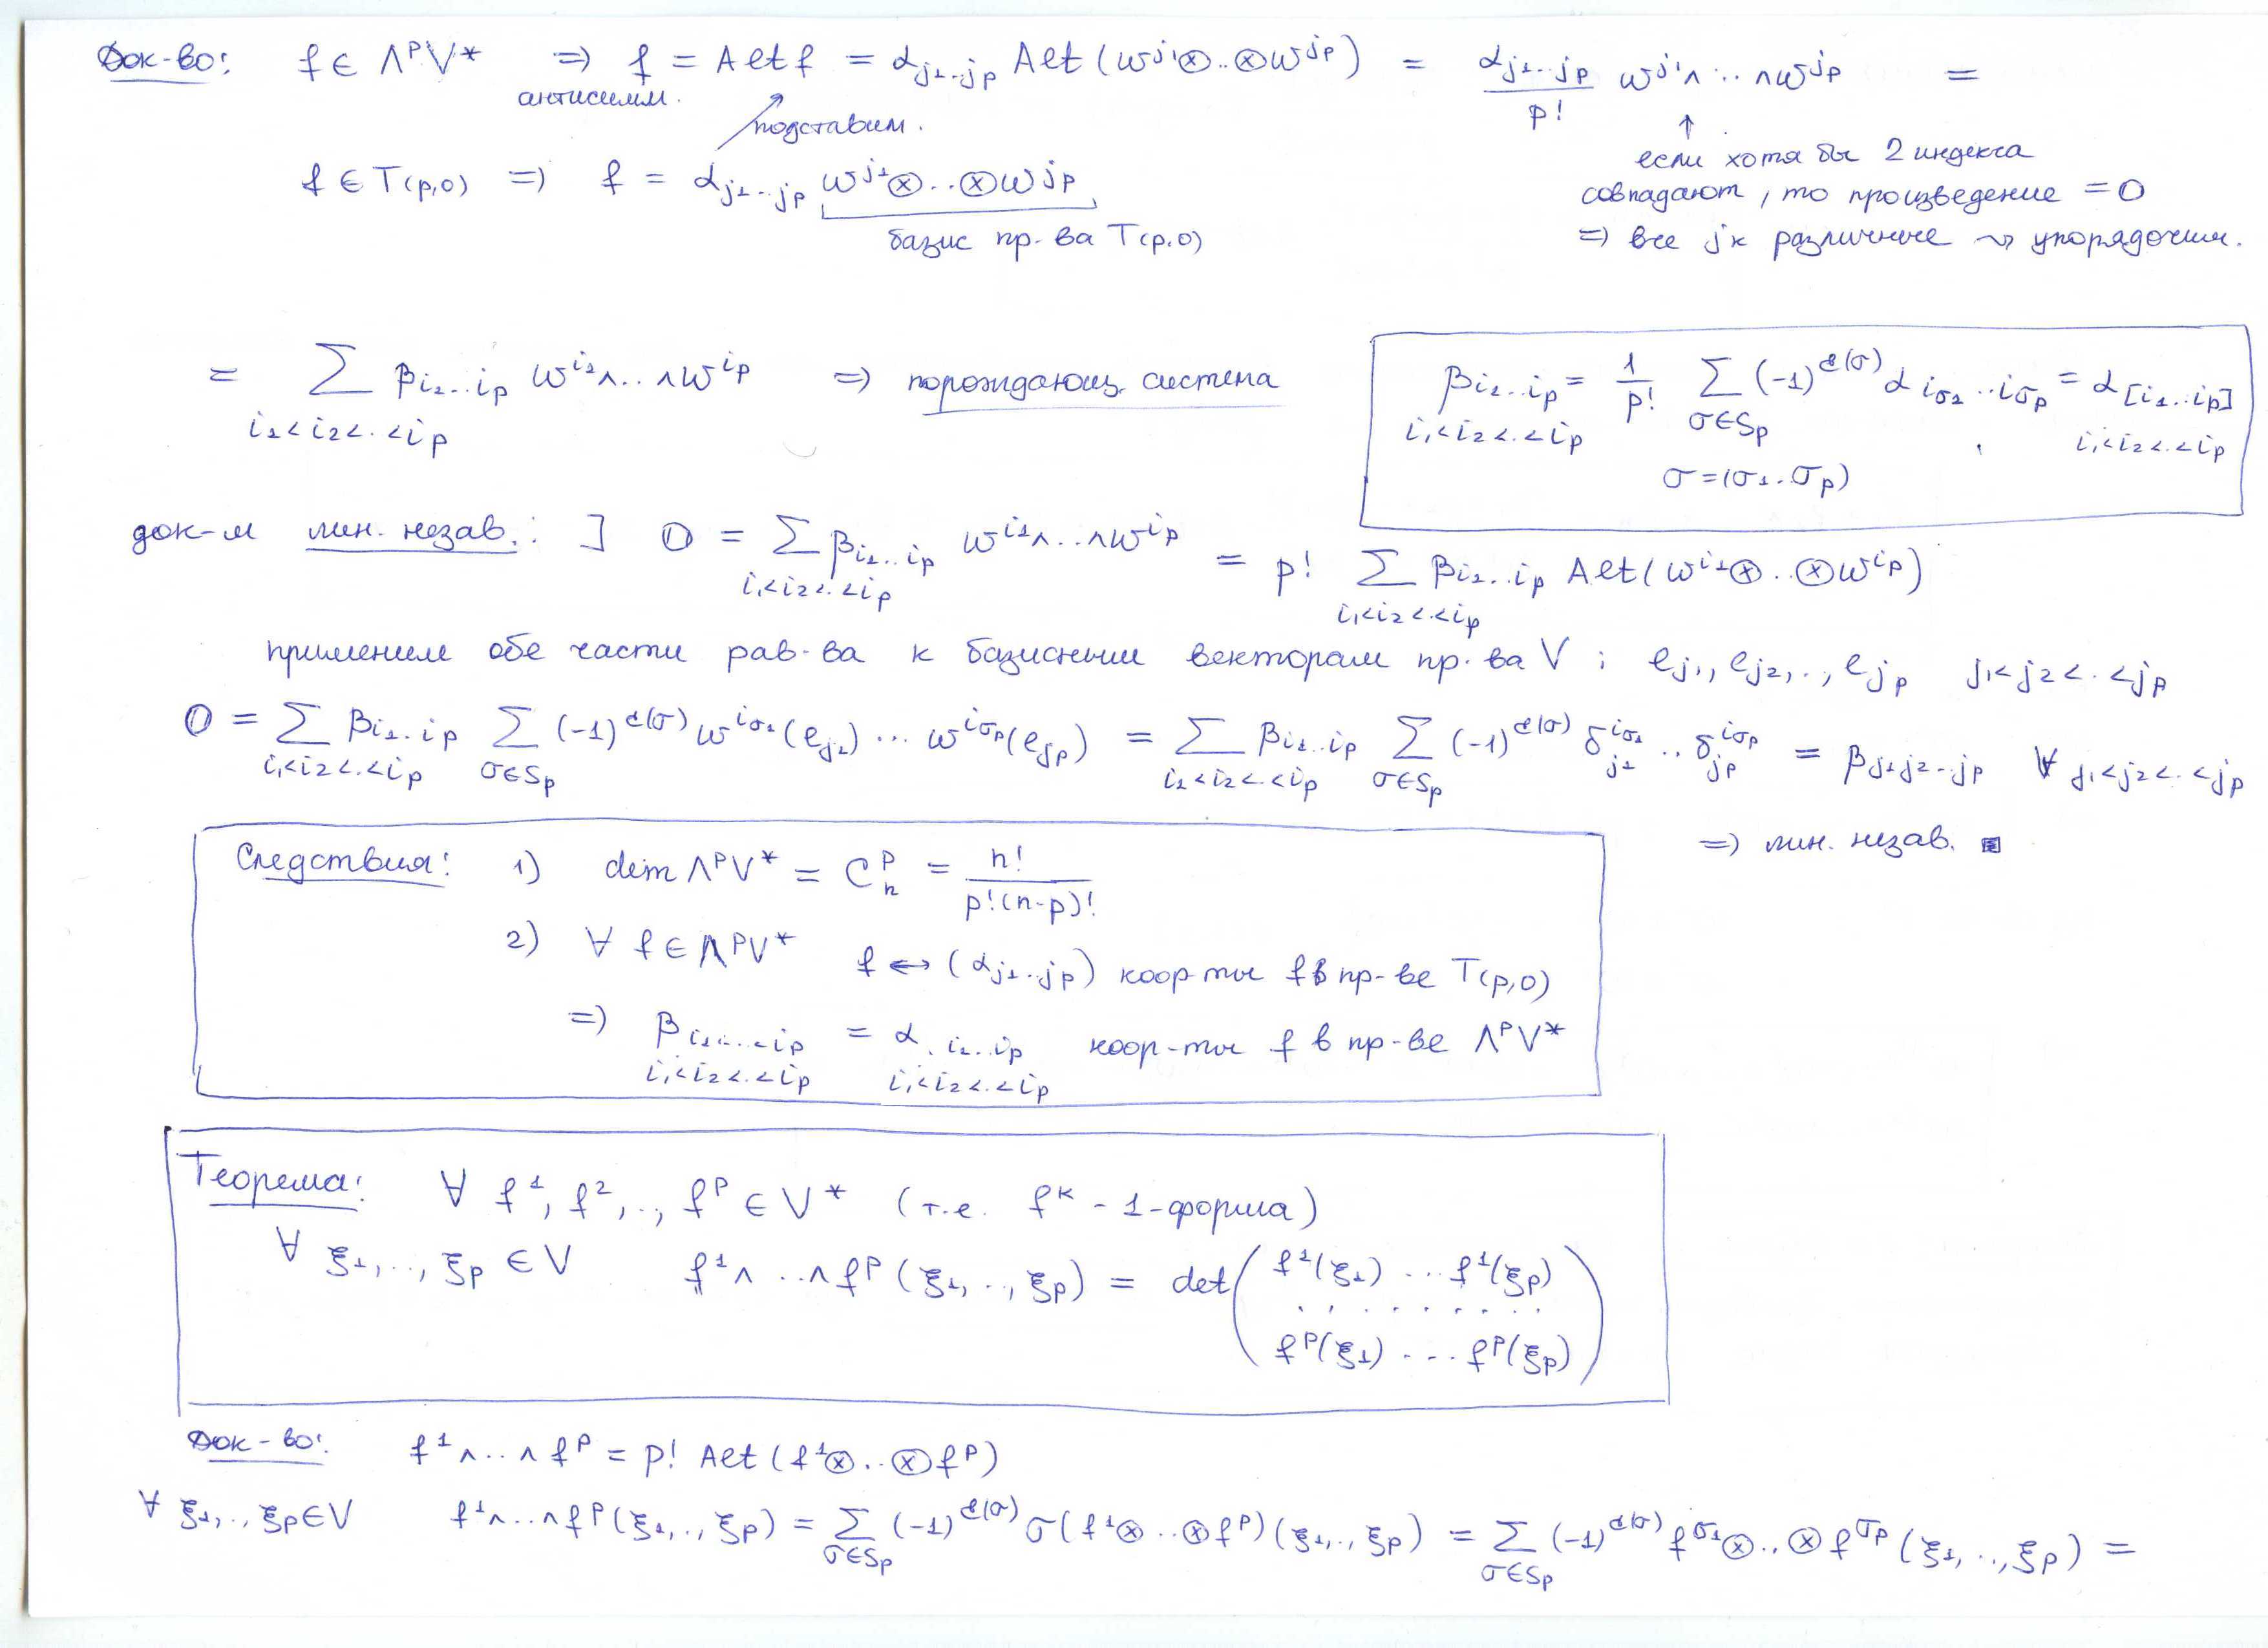 Док-во: f ∈ ΛᵖV* ⇒ f = Alt f = α_{j₁..jₚ} Alt(ω^{j₁}⊗..⊗ω^{jₚ}) = α_{j₁..jₚ}/p! ω^{j₁}∧..∧ω^{jₚ} =
антисимм.
подставим.
↑
если хотя бы 2 индекса
f ∈ T(p,0) ⇒ f = α_{j₁..jₚ} ω^{j₁}⊗..⊗ω^{jₚ}
совпадают, то произведение = 0
базис пр-ва T(p,0)
⇒ все jₖ различные ⤳ упорядочим.
= ∑_{i₁<i₂<..<iₚ} β_{i₁..iₚ} ω^{i₁}∧..∧ω^{iₚ} ⇒ порождающ. система
β_{i₁..iₚ} = 1/p! ∑_{σ∈Sₚ} (-1)^{ε(σ)} α_{iσ₁..iσₚ} = α_{[i₁..iₚ]}
i₁<i₂<..<iₚ i₁<i₂<..<iₚ
σ=(σ₁..σₚ)
док-м лин. незав.: ] 𝟘 = ∑_{i₁<i₂<..<iₚ} β_{i₁..iₚ} ω^{i₁}∧..∧ω^{iₚ} = p! ∑_{i₁<i₂<..<iₚ} β_{i₁..iₚ} Alt(ω^{i₁}⊗..⊗ω^{iₚ})
применим обе части рав-ва к базисным векторам пр-ва V: e_{j₁}, e_{j₂},.., e_{jₚ} j₁<j₂<..<jₚ
𝟘 = ∑_{i₁<i₂<..<iₚ} β_{i₁..iₚ} ∑_{σ∈Sₚ} (-1)^{ε(σ)} ω^{iσ₁}(e_{j₁}) ... ω^{iσₚ}(e_{jₚ}) = ∑_{i₁<i₂<..<iₚ} β_{i₁..iₚ} ∑_{σ∈Sₚ} (-1)^{ε(σ)} δ^{iσ₁}_{j₁}..δ^{iσₚ}_{jₚ} = β_{j₁j₂..jₚ} ∀ j₁<j₂<..<jₚ
⇒ лин. незав. ▣
Следствия: 1) dim ΛᵖV* = Cₙᵖ = n!/p!(n-p)!
2) ∀ f ∈ ΛᵖV* f ↔ (α_{j₁..jₚ}) коор-ты f в пр-ве T(p,0)
⇒ β_{i₁..iₚ} = α_{i₁..iₚ} коор-ты f в пр-ве ΛᵖV*
i₁<i₂<..<iₚ i₁<i₂<..<iₚ
Теорема: ∀ f¹, f²,.., fᵖ ∈ V* (т.е. fᵏ - 1-форма)
∀ ξ₁,.., ξₚ ∈ V f¹∧..∧fᵖ(ξ₁,.., ξₚ) = det ( f¹(ξ₁) ... f¹(ξₚ)
. . . . . . . . .
fᵖ(ξ₁) ... fᵖ(ξₚ) )
Док-во: f¹∧..∧fᵖ = p! Alt(f¹⊗..⊗fᵖ)
∀ ξ₁,.., ξₚ ∈ V f¹∧..∧fᵖ(ξ₁,.., ξₚ) = ∑_{σ∈Sₚ} (-1)^{ε(σ)} σ(f¹⊗..⊗fᵖ)(ξ₁,.., ξₚ) = ∑_{σ∈Sₚ} (-1)^{ε(σ)} f^{σ₁}⊗..⊗f^{σₚ}(ξ₁,.., ξₚ) =